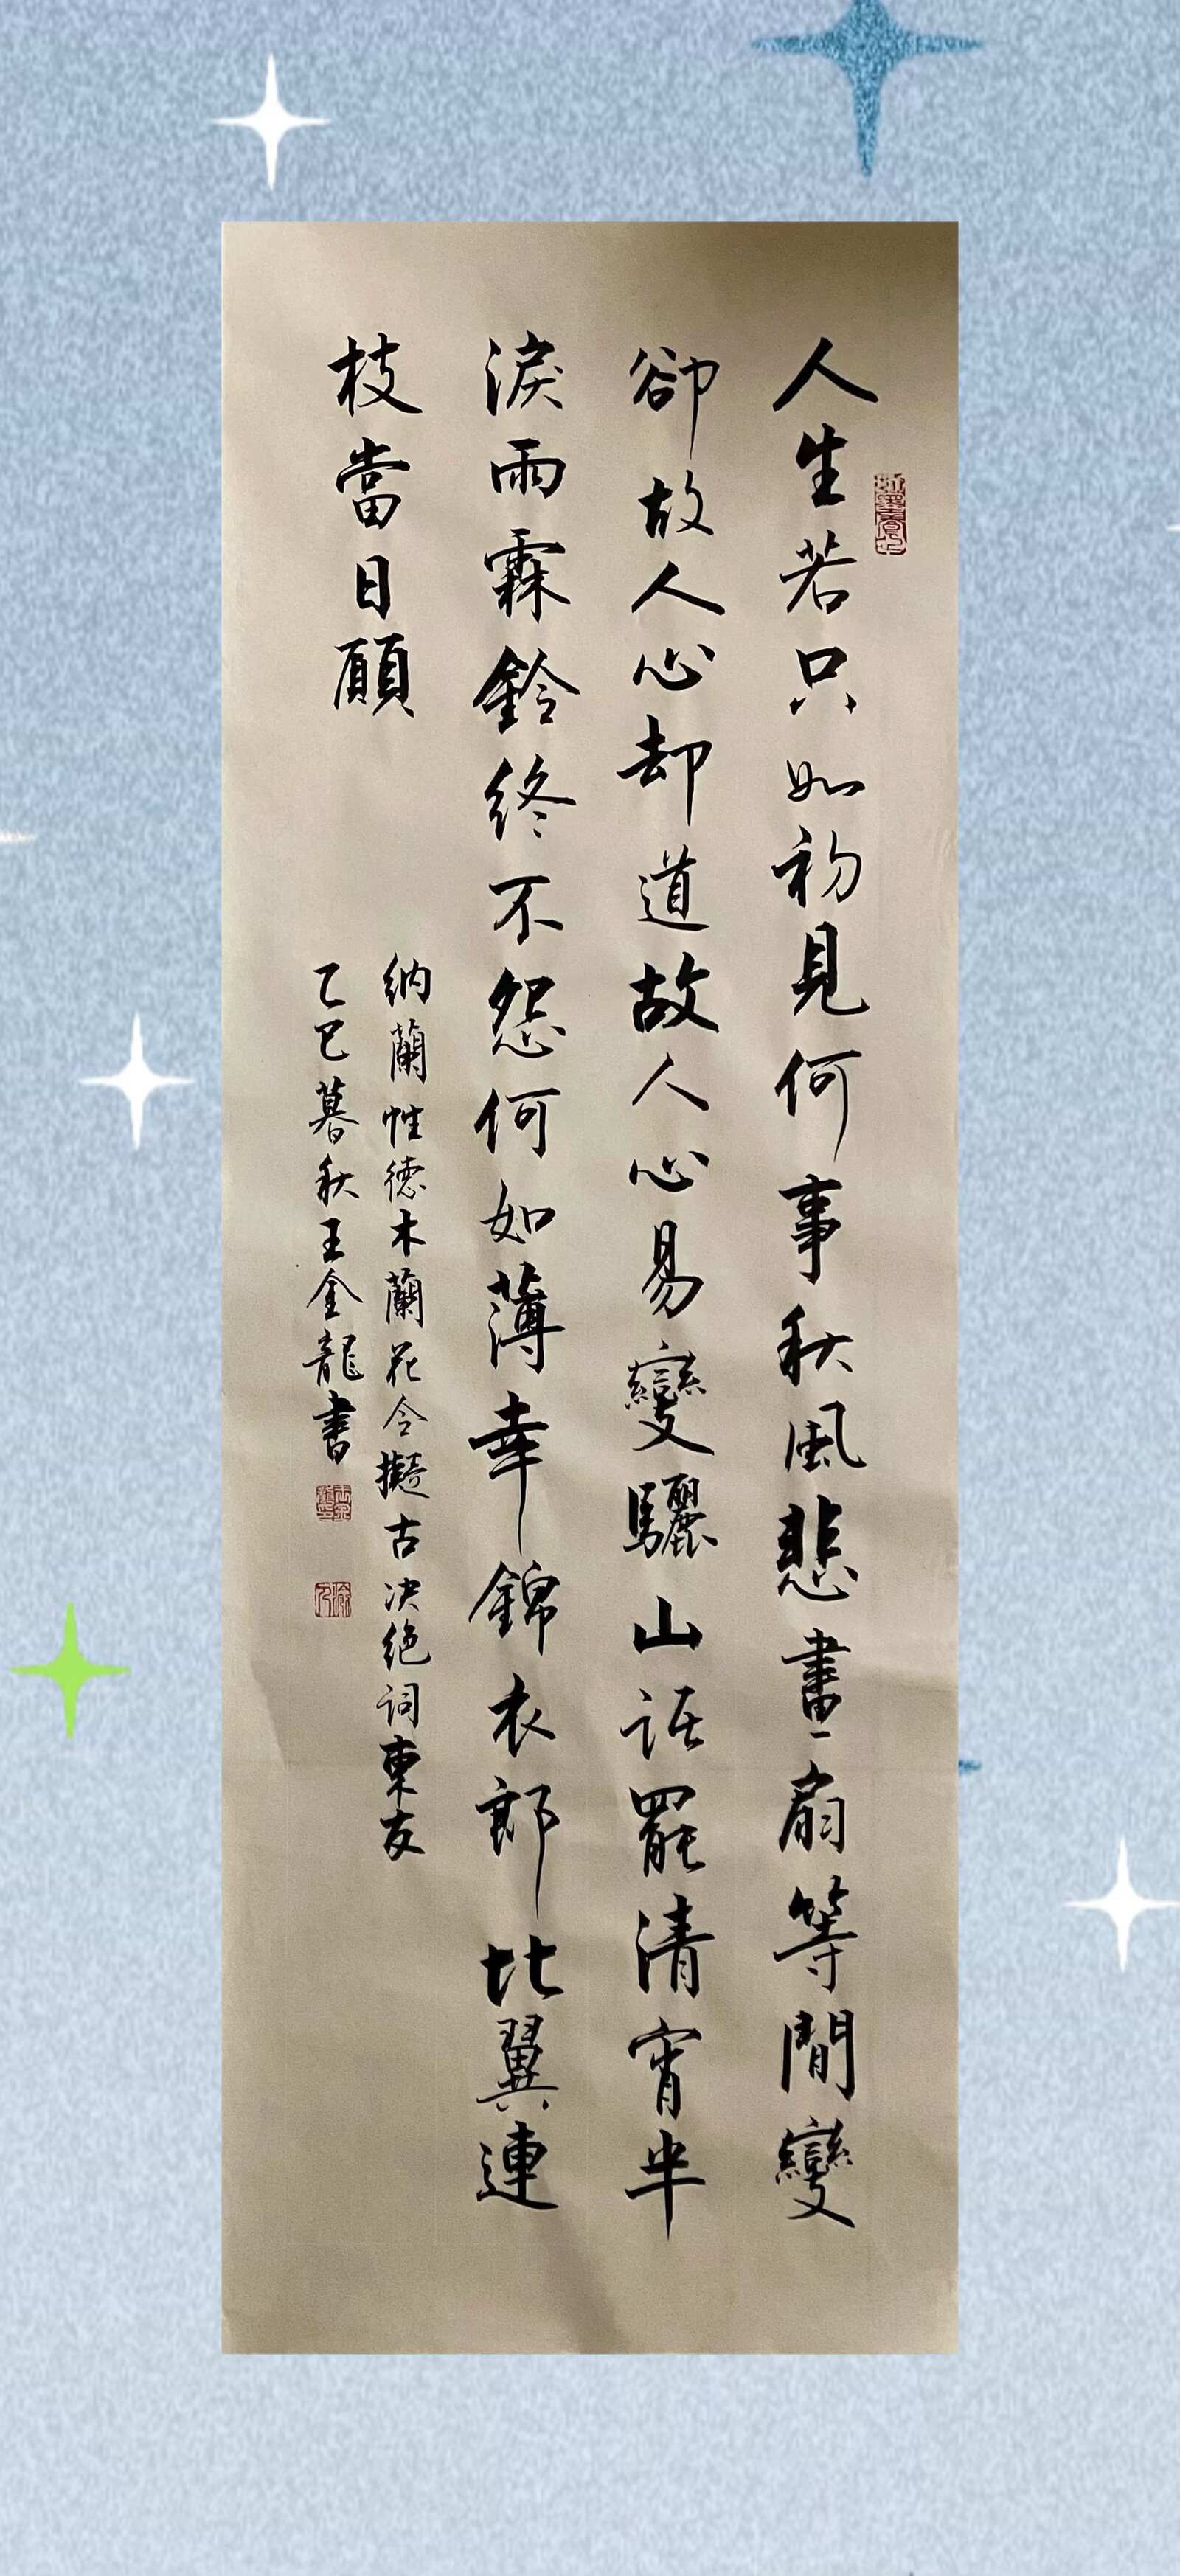 人生若只如初見何事秋風悲畫扇等閒變
卻故人心却道故人心易變驪山話罷清宵半
淚雨霖鈴終不怨何如薄幸錦衣郎比翼連
枝當日願
納蘭性德木蘭花令擬古决绝词柬友
乙巳暮秋王金龍書